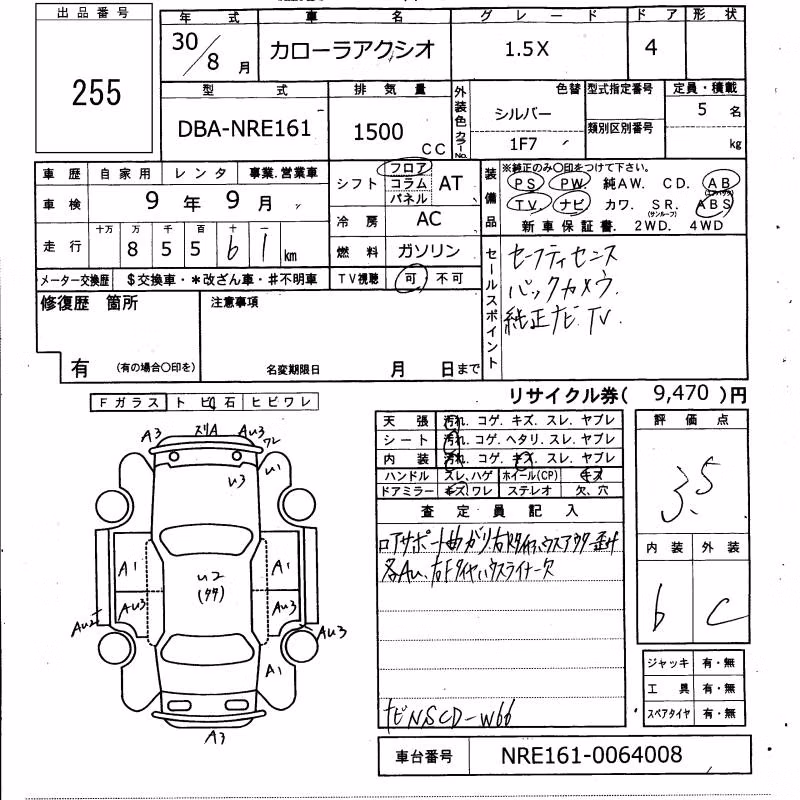 出品番号
255
年式 車名 グレード ドア 形状
30/8月 カローラアクシオ 1.5X 4
型式 排気量 外装色 カラーNo. 色替 型式指定番号 定員・積載
DBA-NRE161 1500 CC シルバー 5 名
1F7 類別区別番号 kg
車歴 自家用 レンタ 事業.営業車
車検 9 年 9 月
走行 十万 万 千 百 十 一
8 5 5 6 1 km
メーター交換歴 $交換車・*改ざん車・#不明車
シフト フロア コラム パネル AT
冷房 AC
燃料 ガソリン
TV視聴 可・不可
装備品 ※純正のみ○印をつけて下さい。
PS PW 純AW. CD. AB (エアバッグ)
TV ナビ カワ. SR. (サンルーフ) ABS
新車保証書. 2WD. 4WD
セールスポイント
セーフティセンス
バックカメラ.
純正ナビ. TV.
修復歴 箇所 注意事項
有 (有の場合○印を) 名変期限日 月 日まで
リサイクル券( 9,470 )円
Fガラス トビ石 ヒビワレ
天張 汚れ. コゲ. キズ. スレ. ヤブレ
シート 汚れ. コゲ. ヘタリ. スレ. ヤブレ
内装 汚れ. コゲ. キズ. スレ. ヤブレ
ハンドル スレ、ハゲ ホイール(CP) キズ
ドアミラー キズ.ワレ ステレオ 欠、穴
評価点
3.5
内装 外装
6 C
査定員記入
ロアサポート曲がり右Rタイヤハウスアウター歪み
各Au、右Fタイヤハウスライナー欠
ナビNSCD-W66
A3 スリA Au3 ワレ
U3 U1
A1 U2 (タタ) A1
Au3 Au3
Au2 Au3
A1
A3
ジャッキ 有・無
工具 有・無
スペアタイヤ 有・無
車台番号 NRE161-0064008